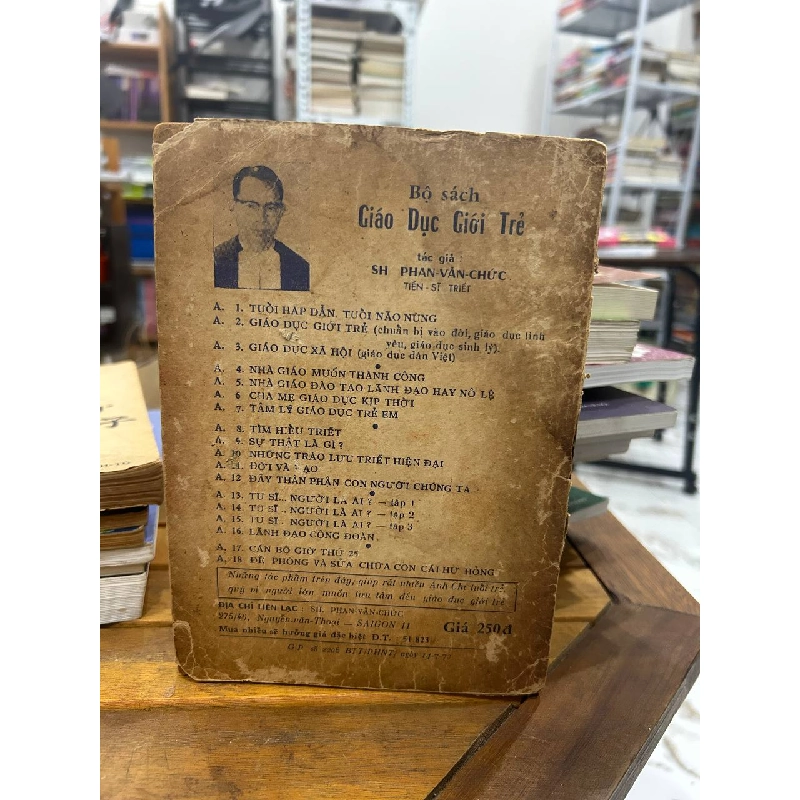 Bộ sách
Giáo Dục Giới Trẻ
tác giả
SH PHAN-VĂN-CHỨC
TIẾN-SĨ TRIẾT
A. 1. TUỔI HẤP DẪN, TUỔI NÃO NÙNG
A. 2. GIÁO DỤC GIỚI TRẺ (chuẩn bị vào đời, giáo dục tình
yêu, giáo dục sinh lý).
A. 3. GIÁO DỤC XÃ HỘI (giáo dục dân Việt)
A. 4. NHÀ GIÁO MUỐN THÀNH CÔNG
A. 5. NHÀ GIÁO ĐÀO TẠO LÃNH ĐẠO HAY NÔ LỆ
A. 6 CHA MẸ GIÁO DỤC KỊP THỜI
A. 7. TÂM LÝ GIÁO DỤC TRẺ EM
A. 8. TÌM HIỂU TRIẾT
A. 9. SỰ THẬT LÀ GÌ ?
A. 10. NHỮNG TRÀO LƯU TRIẾT HIỆN ĐẠI
A. 11. ĐỜI VÀ ĐẠO
A. 12 ĐÂY THÂN PHẬN CON NGƯỜI CHÚNG TA
A. 13. TU SĨ.. NGƯỜI LÀ AI ? — tập 1
A. 14. TU SĨ.. NGƯỜI LÀ AI ? — tập 2
A. 15. TU SĨ.. NGƯỜI LÀ AI ? — tập 3
A. 16. LÃNH ĐẠO CỘNG ĐOÀN
A. 17. CÁN BỘ GIỜ THỨ 25
A. 18. ĐỀ PHÒNG VÀ SỬA CHỮA CON CÁI HƯ HỎNG
Những tác phẩm trên đây, giúp rất nhiều Anh Chị tuổi trẻ,
quý vị người lớn muốn lưu tâm đến giáo dục giới trẻ
ĐỊA CHỈ LIÊN LẠC : SH. PHAN-VĂN-CHỨC
Nguyễn-văn-Thoại — SAIGON 11
Giá 250đ
Mua nhiều sẽ hưởng giá đặc biệt Đ.T.
G.P. số BTT/PHNT, ngày